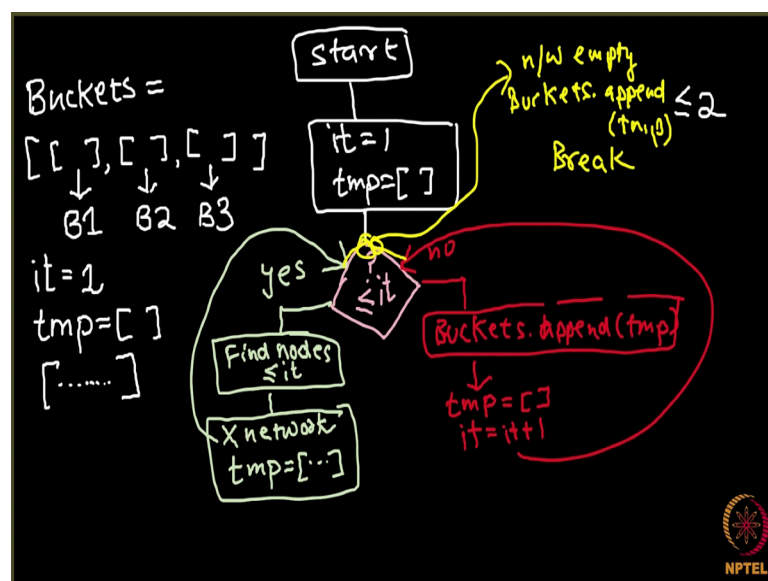 start
Buckets =
[[ ], [ ], [ ]]
B1 B2 B3
it=1
tmp=[ ]
[.......]
it=1
tmp=[ ]
n/w empty
Buckets.append
(tmp)
≤2
Break
yes
?
≤it
no
Find nodes
≤it
X network
tmp=[...]
Buckets.append(tmp)
tmp=[]
it=it+1
NPTEL